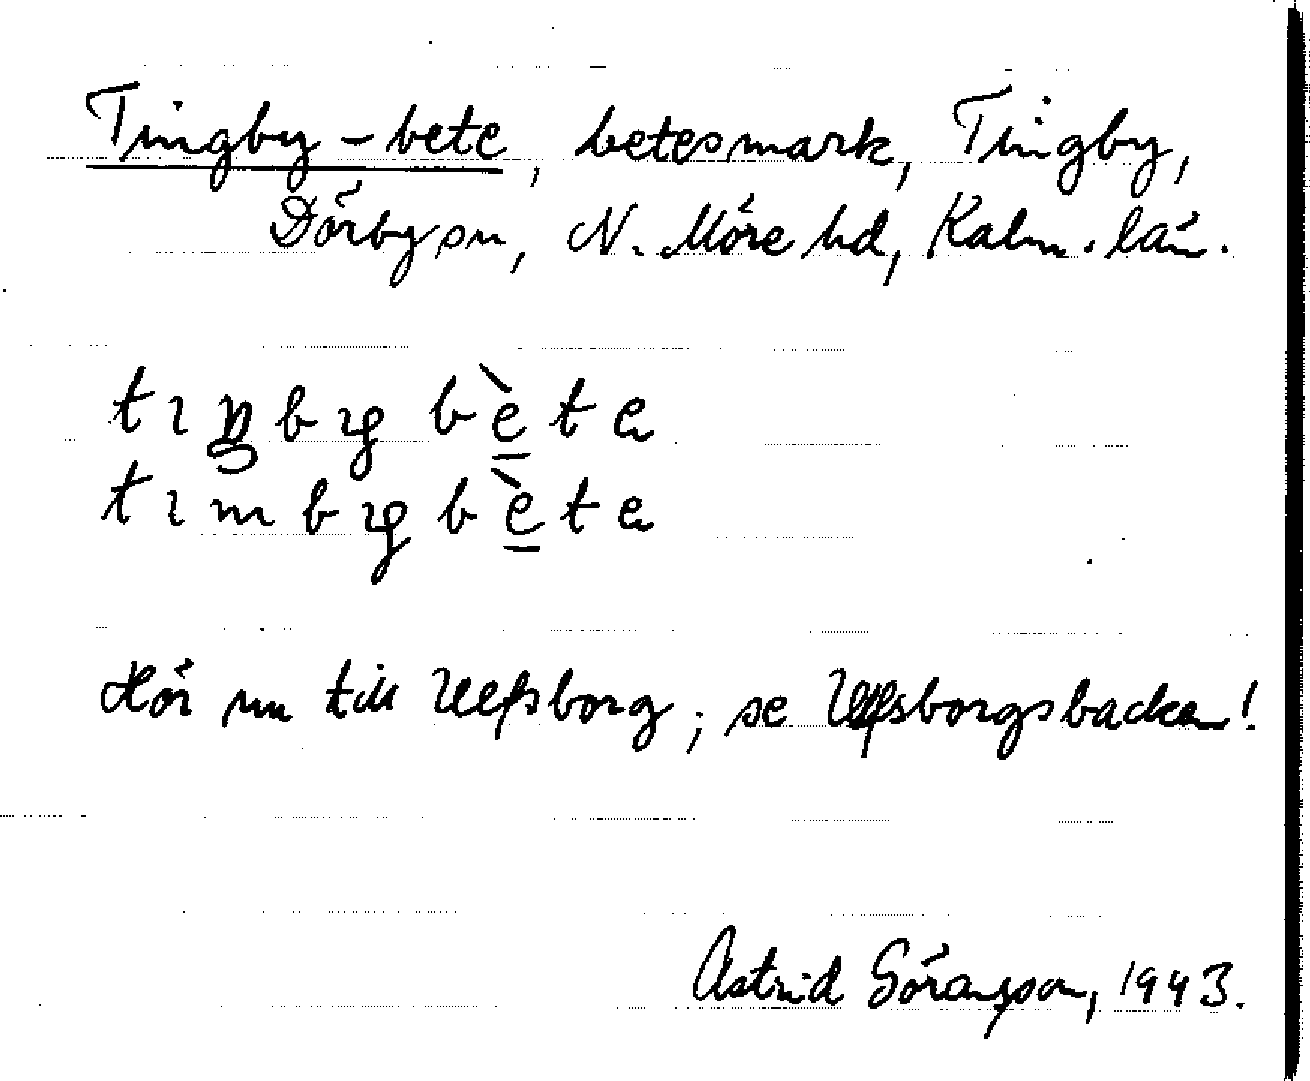 Tingby-bete, betesmark, Tingby,
Dörby sn, N. Möre hd, Kalm. län.
tıŋbybète
tımbybète
Hör nu till Ulfsborg; se Ulfsborgsbacken!
Astrid Göransson, 1943.